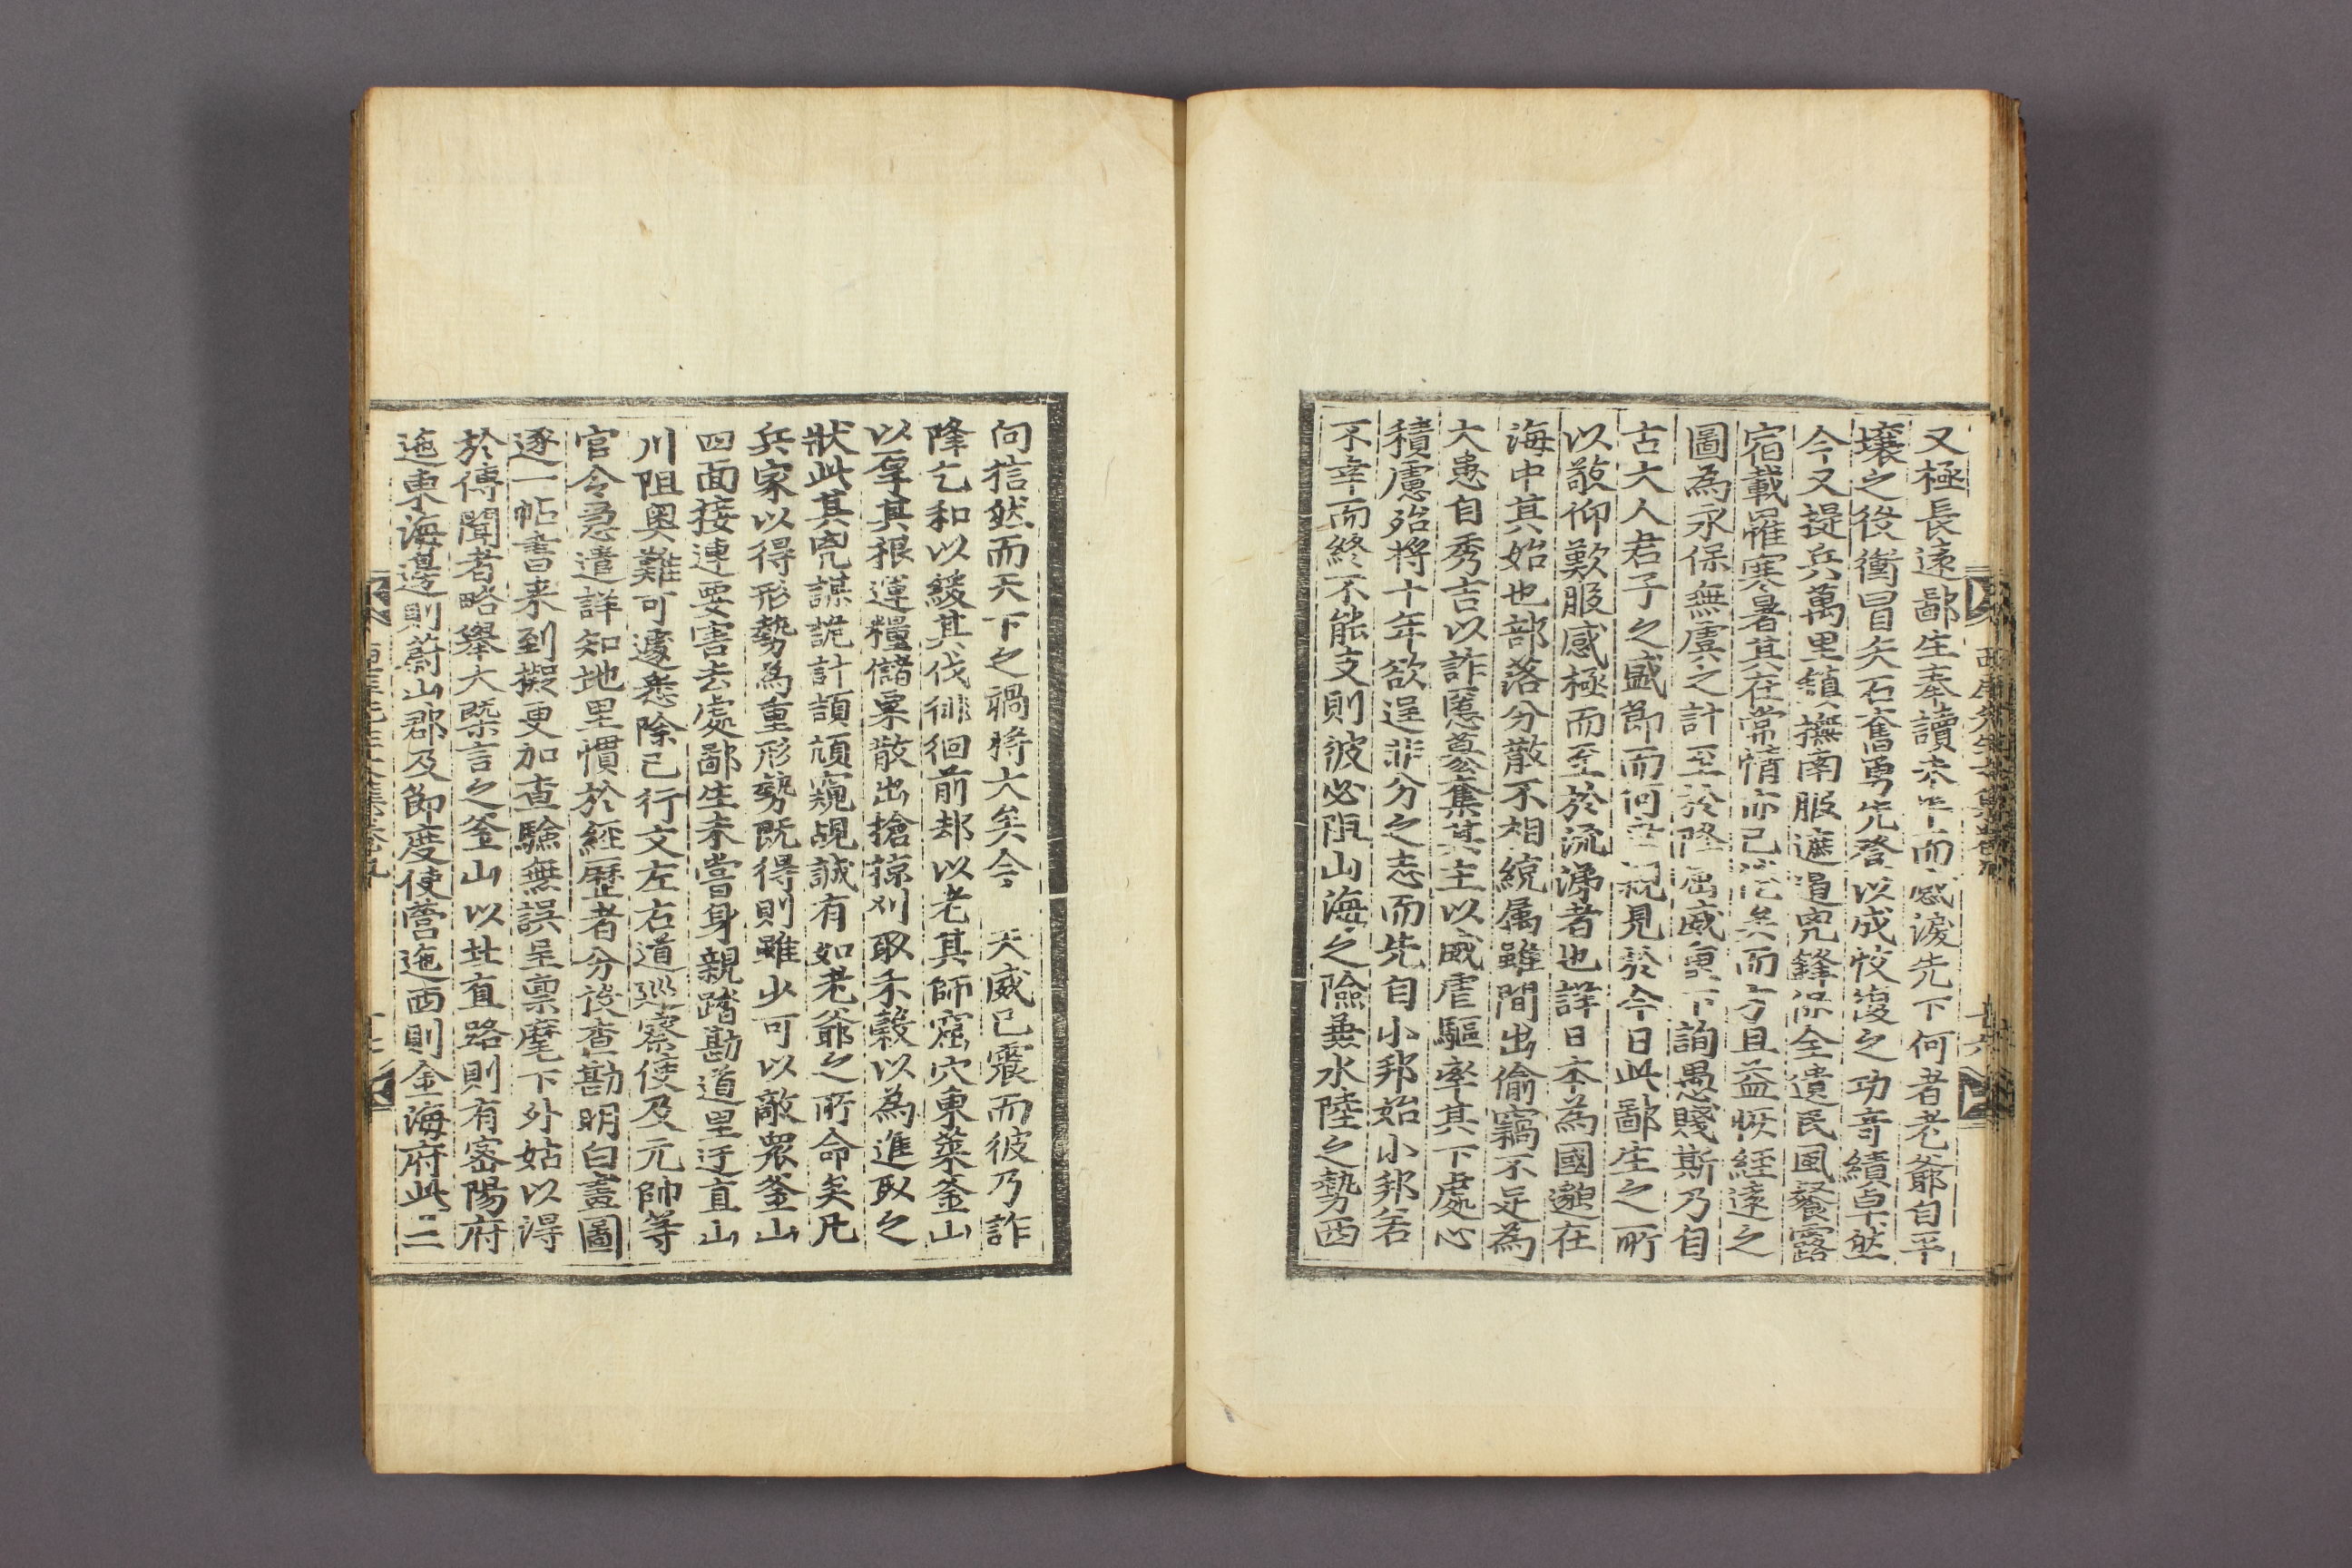 又極長遠鄙生奉讀未半而感淚先下何者老爺自平
壤之役衝冒矢石奮勇先登以成恢復之功竒績卓然
今又提兵萬里鎮撫南服遮遏兇鋒保全遺民風餐露
宿載罹寒暑其在常情亦已勞矣而方且益恢經遠之
圖為永保無虞之計至於降屈威重下詢愚賤斯乃自
古大人君子之盛節而何幸親見於今日此鄙生之所
以敬仰歎服感極而至於流涕者也詳日本為國邈在
海中其始也部落分散不相統属雖間出偷竊不足為
大患自秀吉以詐慝簒奪其主以威虐驅率其下處心
積慮殆将十年欲逞非分之志而先自小邦始小邦若
不幸而終不能支則彼必阻山海之險兼水陸之勢西
向猘然而天下之禍将大矣今 天威已震而彼乃詐
降乞和以緩其伐徘徊前却以老其師窟穴東萊釜山
以厚其根運糧儲粟散出搶掠刈取禾穀以為進取之
狀此其兇謀詭計頡頏窺覘誠有如老爺之所命矣凡
兵家以得形勢為重形勢既得則雖少可以敵衆釜山
四面接連要害去處鄙生未嘗身親踏勘道里迂直山
川阻奥難可遽悉除已行文左右道巡察使及元帥等
官令急遣詳知地里慣於經歷者分投查勘明白畫圖
逐一帖書来到擬更加查驗無誤呈禀麾下外姑以淂
於傳聞者略舉大槩言之釜山以北直路則有密陽府
迤東海邊則蔚山郡及節度使營迤西則金海府此三